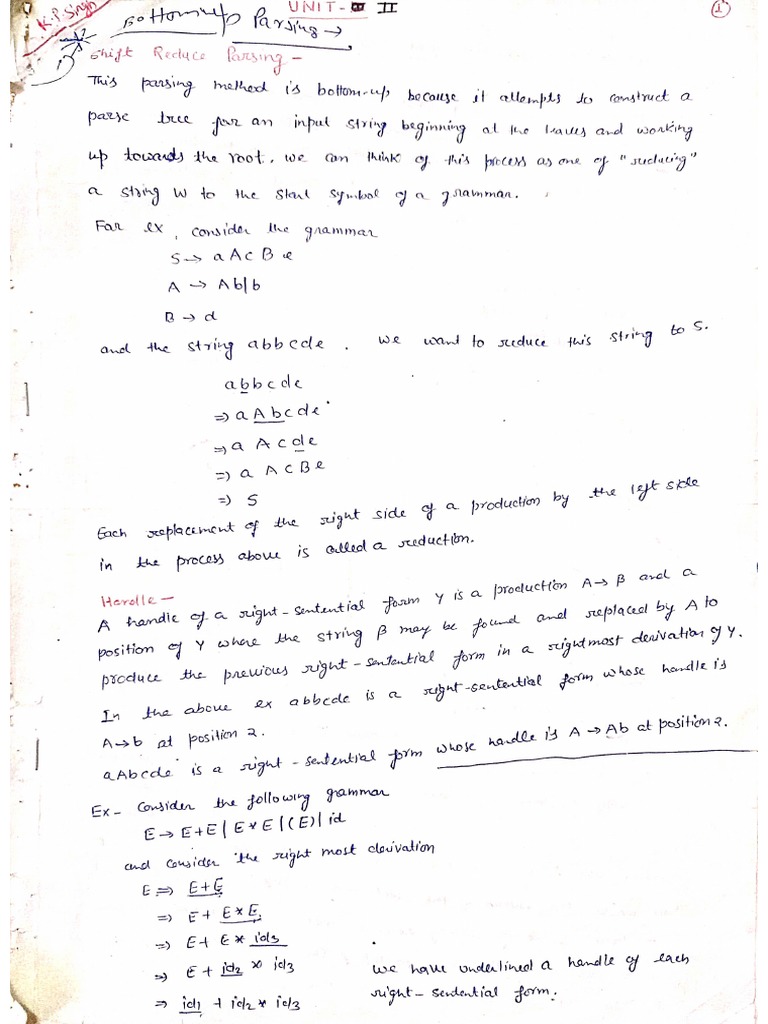 K.P. Singh
UNIT- II
1
Bottom-up Parsing →
1) Shift Reduce Parsing -
This parsing method is bottom-up because it attempts to construct a
parse tree for an input string beginning at the leaves and working
up towards the root. We can think of this process as one of "reducing"
a string W to the start symbol of a grammar.
For ex, consider the grammar
S → aAcBe
A → Ab|b
B → d
and the string abbcde. We want to reduce this string to S.
abbcde
⇒ aAbcde
⇒ aAcde
⇒ aAcBe
⇒ S
Each replacement of the right side of a production by the left side
in the process above is called a reduction.
Handle -
A handle of a right-sentential form γ is a production A → β and a
position of γ where the string β may be found and replaced by A to
produce the previous right-sentential form in a rightmost derivation of γ.
In the above ex abbcde is a right-sentential form whose handle is
A→b at position 2.
aAbcde is a right-sentential form whose handle is A → Ab at position 2.
Ex- Consider the following grammar
E → E+E | E*E | (E) | id
and consider the right most derivation
E ⇒ E+E
⇒ E + E*E
⇒ E+ E * id3
⇒ E + id2 * id3
⇒ id1 + id2 * id3
We have underlined a handle of each
right-sentential form.